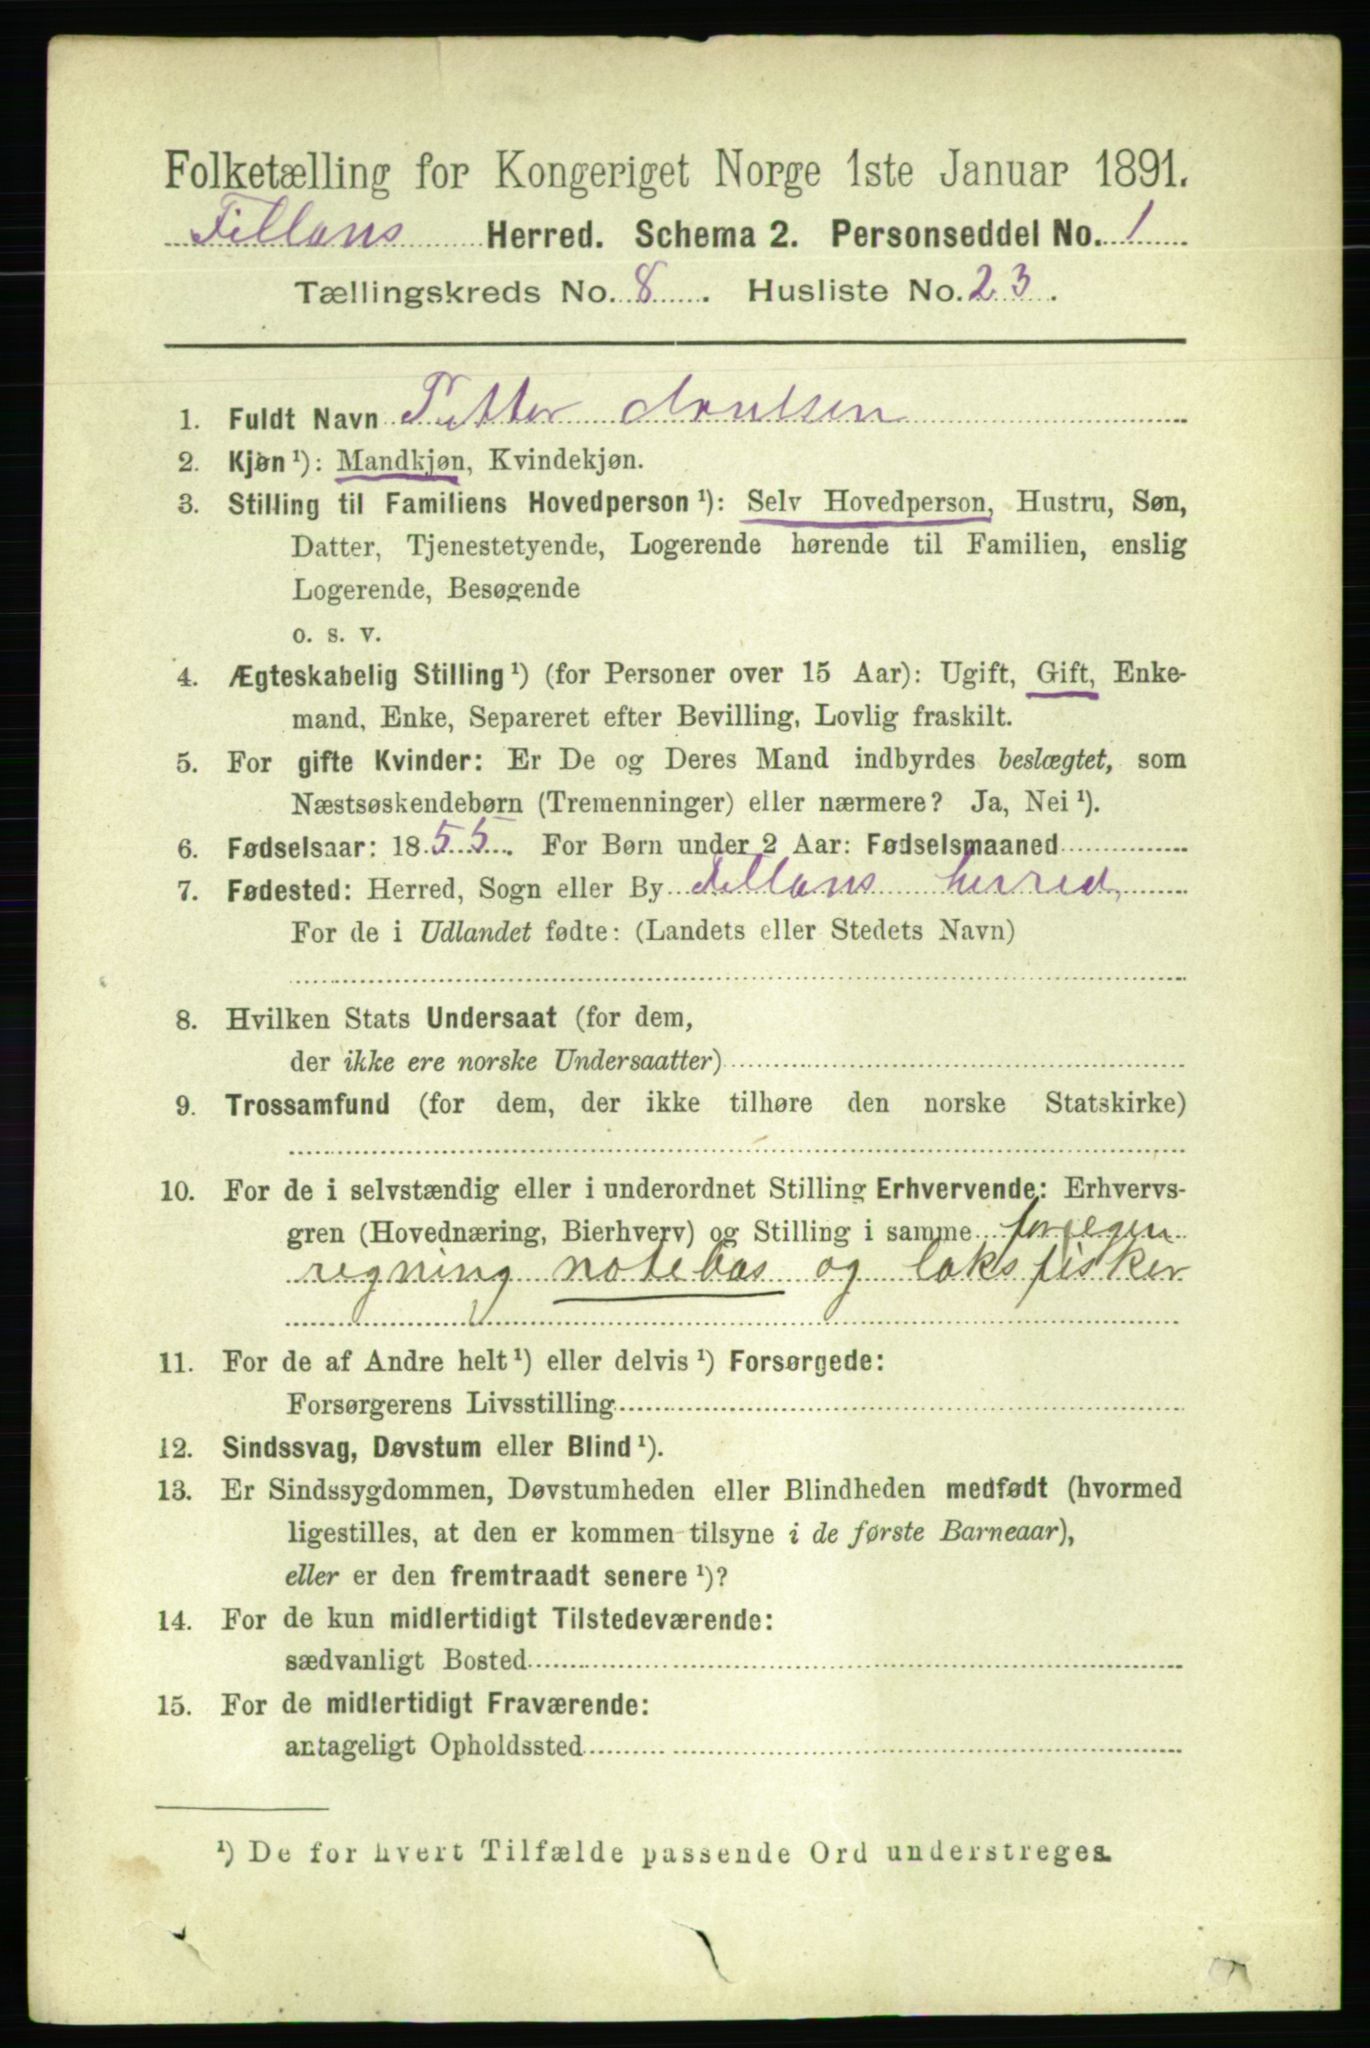 Folketælling for Kongeriget Norge 1ste Januar 1891.
Fillans Herred. Schema 2. Personseddel No. 1
Tællingskreds No. 8. Husliste No. 23.
1. Fuldt Navn Petter Arntsen
2. Kjøn ¹): Mandkjøn, Kvindekjøn.
3. Stilling til Familiens Hovedperson ¹): Selv Hovedperson, Hustru, Søn,
Datter, Tjenestetyende, Logerende hørende til Familien, enslig
Logerende, Besøgende
o. s. v.
4. Ægteskabelig Stilling ¹) (for Personer over 15 Aar): Ugift, Gift, Enke-
mand, Enke, Separeret efter Bevilling, Lovlig fraskilt.
5. For gifte Kvinder: Er De og Deres Mand indbyrdes beslægtet, som
Næstsøskendebørn (Tremenninger) eller nærmere? Ja, Nei ¹).
6. Fødselsaar: 1855. For Børn under 2 Aar: Fødselsmaaned
7. Fødested: Herred, Sogn eller By Fillans herred,
For de i Udlandet fødte: (Landets eller Stedets Navn)
8. Hvilken Stats Undersaat (for dem,
der ikke ere norske Undersaatter)
9. Trossamfund (for dem, der ikke tilhøre den norske Statskirke)
10. For de i selvstændig eller i underordnet Stilling Erhvervende: Erhvervs-
gren (Hovednæring, Bierhverv) og Stilling i samme for egen
regning notebas og laksfisker
11. For de af Andre helt ¹) eller delvis ¹) Forsørgede:
Forsørgerens Livsstilling
12. Sindssvag, Døvstum eller Blind ¹).
13. Er Sindssygdommen, Døvstumheden eller Blindheden medfødt (hvormed
ligestilles, at den er kommen tilsyne i de første Barneaar),
eller er den fremtraadt senere ¹)?
14. For de kun midlertidigt Tilstedeværende:
sædvanligt Bosted
15. For de midlertidigt Fraværende:
antageligt Opholdssted
¹) De for hvert Tilfælde passende Ord understreges.